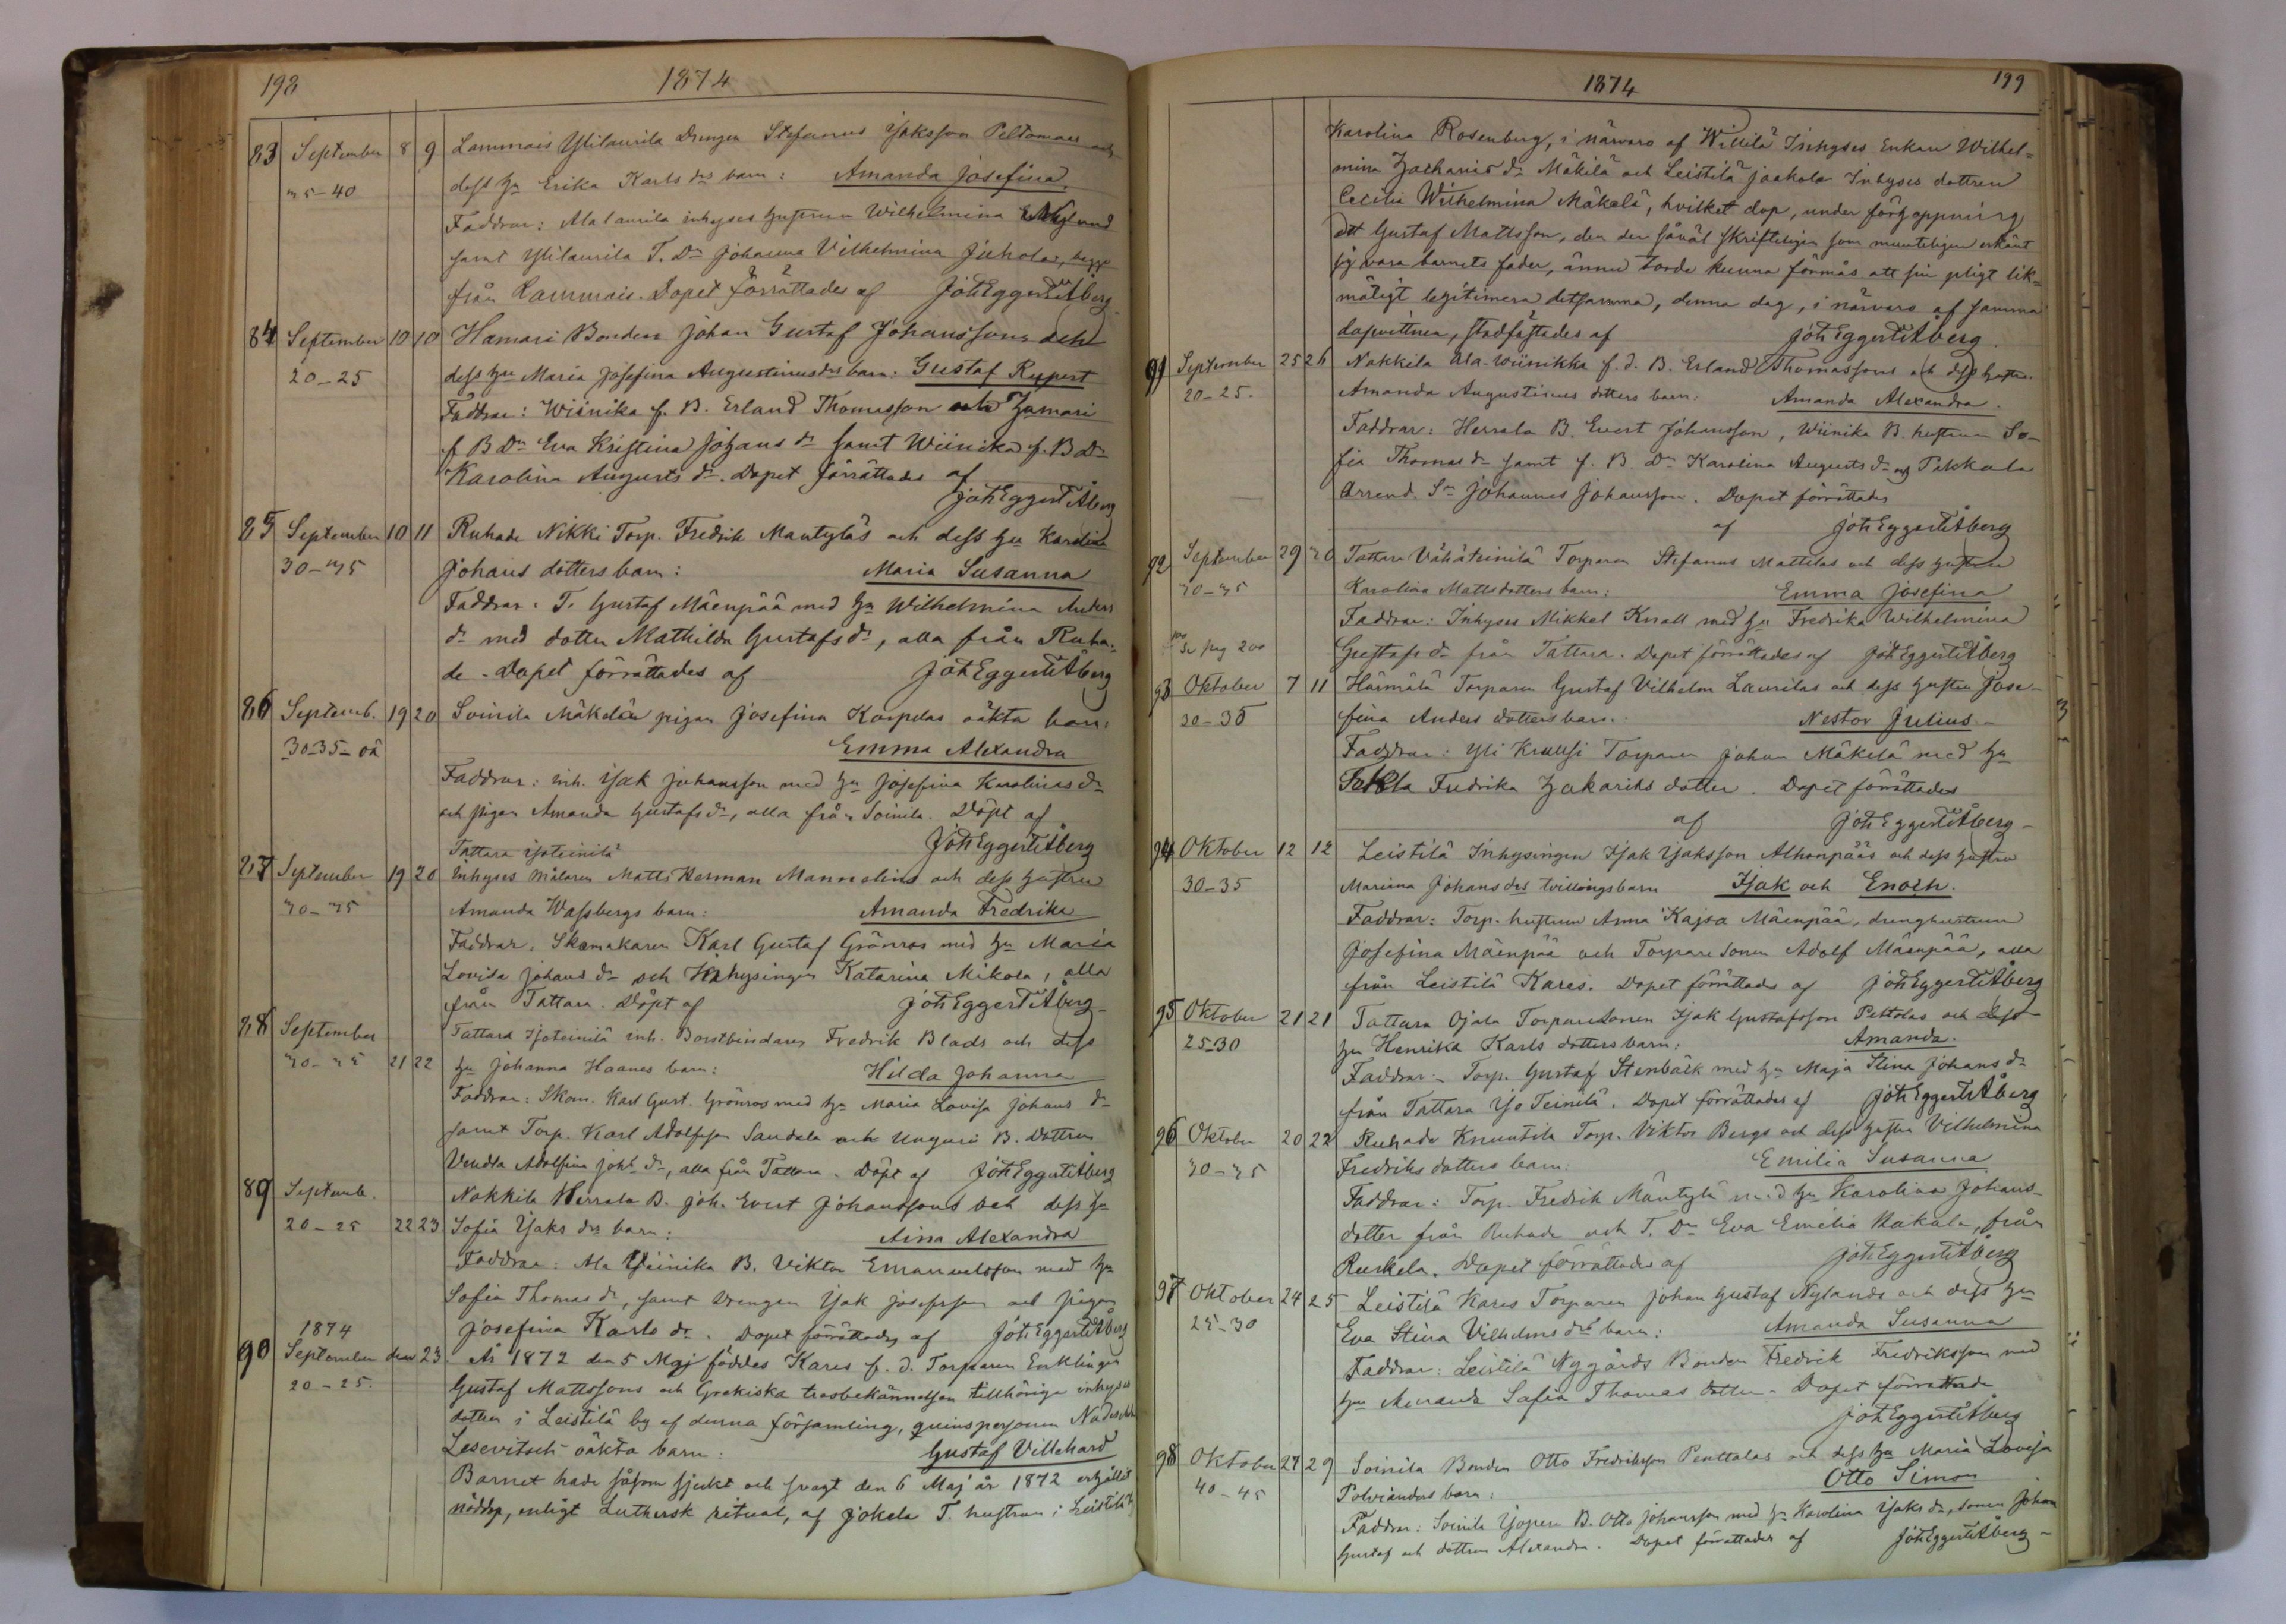 198
1874
83 September 8 9 Lammais Ylitaurila Drengen Stefanus Isaksson Peltomaas och
35-40 dess hu Erika Karls drs barn: Amanda Josefina.
Faddrar: Alataurila inhyses hustrun Wilhelmina Nylund
samt Ylitaurila T. Dr Johanna Vilhelmina Juhola, begge
från Lammais. Dopet förrättades af Joh Eggert Åberg
84 September 10 10 Hamari Bonden Johan Gustaf Johanssons och
20-25 dess hu Maria Josefina Augustinusdrs barn: Gustaf Rupert
Faddrar: Wiinika f. B. Erland Thomasson och Hamari
f B Dr Eva Kristina Johans dr samt Wiinika f. B Dr
Karolina Augusts dr. Dopet förrättades af
Joh Eggert Åberg
85 September 10 11 Ruhade Nikki Torp. Fredrik Mantyläs och dess hu Karolina
30-35 Johans dotters barn: Maria Susanna
Faddrar: T. Gustaf Mäenpää med hu Wilhelmina Anders
dr med dotter Mathilda Gustafs dr, alla från Ruha-
de. Dopet förrättades af Joh Eggert Åberg
86 Septemb. 19 20 Soinila Mäkelän pigan Josefina Korpelas oäkta barn:
30-35-oä Emma Alexandra
Faddrar: inh. Isak Johansson med hu Josefina Karolinas dr
och pigan Amanda Gustafs dr, alla från Soinila. Döpt af
Joh Eggert Åberg
Tattara Isoteinilä
87 September 19 20 Inhyses målaren Matts Herman Mannelins och dess hustru
30-35 Amanda Wassbergs barn: Amanda Fredrika
Faddrar: Skomakaren Karl Gustaf Grönros med hu Maria
Lovisa Johans dr och Inhysingen Katarina Mikola, alla
från Tattara. Döpt af Joh Eggert Åberg
88 September Tattara Isoteinilä inh. Borstbindaren Fredrik Blads och dess
30-35 21 22 hu Johanna Haanes barn: Hilda Johanna
Faddrar: Skom. Karl Gust. Grönros med hu Maria Lovisa Johans dr
samt Torp. Karl Adolfsson Sandela och Ungari B. Dottren
Vendla Adolfina Johs dr, alla från Tattara. Döpt af Joh Eggert Åberg
89 Septemb. Nakkila Herrala B. Joh. Evert Johanssons och dess hu
20-25 22 23 Sofia Isaks drs barn: Aina Alexandra
Faddrar: Ala Wiinika B. Viktor Emanuelsson med hu
Sofia Thomas dr, samt Drengen Isak Josefsson och pigan
Josefina Karls dr. Dopet förrättades af Joh Eggert Åberg
1874
90 September den 23. År 1872 den 5 Maj föddes Karis f. d. Torparen Enklingen
20-25. Gustaf Mattssons och Grekiska trosbekännelsen tillhöriga inhyses
dottren i Leistilä by af denna församling, qvinspersonen
Lesevitsch oäkta barn: Gustaf Villehard
Barnet hade såsom sjukt och svagt den 6 Maj år 1872 erhållit
nöddop, enligt Luthersk ritual, af Jokela T. hustrun i Leistilä
1874
199
Karolina Rosenberg, i närvaro af Willilä Inhyses Enkan Wilhel-
mina Zacharias dr Mäkilä och Leistilä Jaakola Inhyses dottren
Cecilia Wilhelmina Mäkelä, hvilket dop, under förhoppning
att Gustaf Mattsson, den der såväl skriftligen som muntligen erkänt
sig vara barnets fader, ännu torde kunna förmås att sin pligt lik-
mätigt legitimera detsamma, denna dag, i närvaro af samma
dopvittnen, stadfästades af Joh Eggert Åberg.
91 September 25 26 Nakkila Ala-Wiinikka f. d. B. Erland Thomassons och dess hustru
20-25. Amanda Augustinus dotters barn: Amanda Alexandra.
Faddrar: Herrala B. Evert Johansson, Wiinika B. hustrun So-
fia Thomas dr samt f. B. Dr Karolina Augusts dr och Pakkala
Arrend. Sn Johannes Johansson. Dopet förrättades
af Joh Eggert Åberg
92 September 29 30 Tattara Vähäteinilä Torparen Stefanus Mattilas och dess hustru
30-35 Karolina Mattsdotters barn: Emma Josefina
Faddrar: Inhyses Mikkel Knall med hu Fredrika Wilhelmina
se pag 200 Gustafs dr från Tattara. Dopet förrättades af Joh Eggert Åberg
93 Oktober 7 11 Härmälä Torparen Gustaf Vilhelm Laurilas och dess hustru Jose-
30-35 fina Anders dotters barn: Nestor Julius
Faddrar: Yli Krausi Torparen Johan Mäkelä med hu
Tekla Fredrika Zakariks dotter. Dopet förrättades
af Joh Eggert Åberg
94 Oktober 12 12 Leistilä Inhysingen Isak Isaksson Alhonpääs och dess hustru
30-35 Mariana Johans drs tvillingsbarn Isak och Enoch.
Faddrar: Torp. hustrun Anna Kajsa Mäenpää, drenghustrun
Josefina Mäenpää och Torpare Sonen Adolf Mäenpää, alla
från Leistilä Karis. Dopet förrättades af Joh Eggert Åberg
95 Oktober 21 21 Tattara Ojala Torparesonen Isak Gustafsson Peltolas och dess
25-30 hu Henrika Karls dotters barn: Amanda.
Faddrar: Torp. Gustaf Stenbäck med hu Maja Stina Johans dr
från Tattara Iso Teinilä. Dopet förrättades af Joh Eggert Åberg
96 Oktober 20 22 Ruhade Knuutila Torp. Viktor Bergs och dess hustru Vilhelmina
30-35 Fredriks dotters barn: Emilia Susanna
Faddrar: Torp. Fredrik Mäntylä med hu Karolina Johans-
dotter från Ruhade och T. Dr Eva Emelia Kakala, från
Ruskela. Dopet förrättades af Joh Eggert Åberg
97 Oktober 24 25 Leistilä Karis Torparen Johan Gustaf Nylands och dess hu
25-30 Eva Stina Vilhelms drs barn: Amanda Susanna
Faddrar: Leistilä Nygårds Bonden Fredrik Fredriksson med
hu Amanda Sofia Thomas dotter. Dopet förrättade
Joh Eggert Åberg
98 Oktober 27 29 Soinila Bonden Otto Fredriksson Penttalas och dess hu Maria Lovisa
40-45 Polviandors barn: Otto Simon
Faddrar: Soinila Yöperi B. Otto Johansson med hu Karolina Isaks dr, sonen Johan
Gustaf och dottren Alexandra. Dopet förrättades af Joh Eggert Åberg